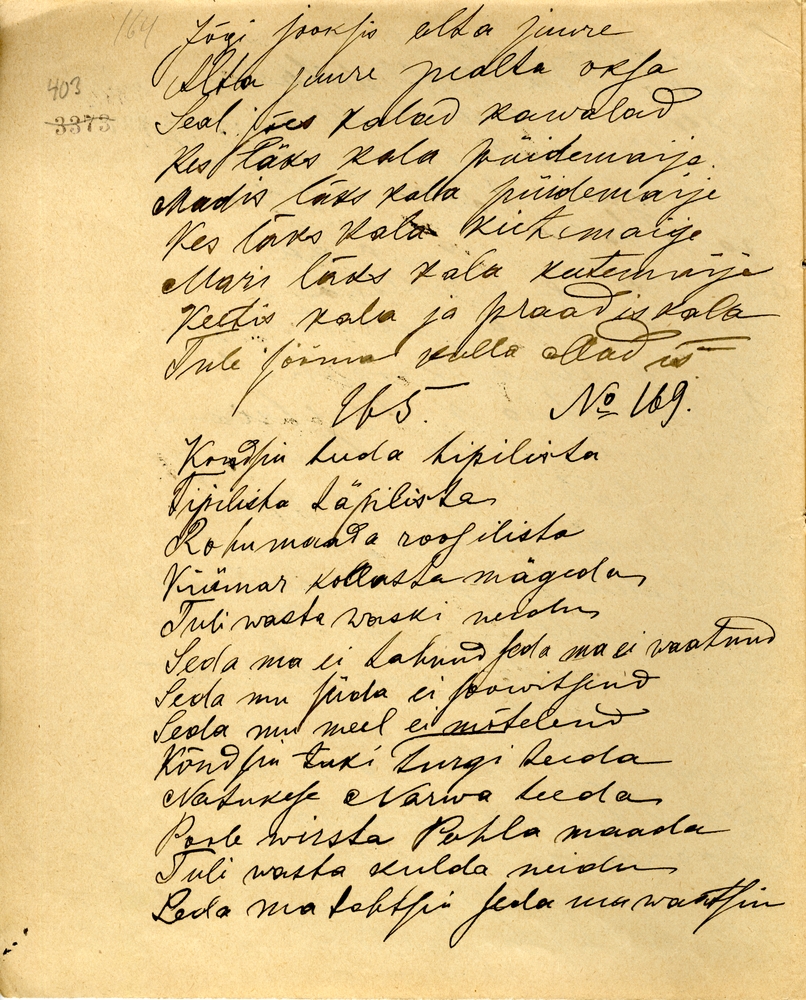 164
403
3373
Jõgi jooksis alta juure
Alta juure pealta oksa
Seal jões kalad kawalad
Kes läks kala püidemaije.
Madis läks kalla püidemaije
Kes läks kala kietemaije
Mari läks kala keetemaije
Keetis kala ja praadis kala
Tuli sööma kulla Madis
165. No 169.
Kondsin teeda tipilista
Tipilista täpilista
Rohumaada roogilista
Küümar kollasta mägeda
Tuli wasta waski neidu
Seda ma ei tahnud seda ma ei waatnud
Seda mu süda ei soowitsend
Seda mu meel ei mõtelend
Kõndsin tüki Turgi teeda
Natukese Narwa teeda
Poole wirsta Pohla maada
Tuli wasta kulda neidu
Seda ma tahtsin seda ma waatsin